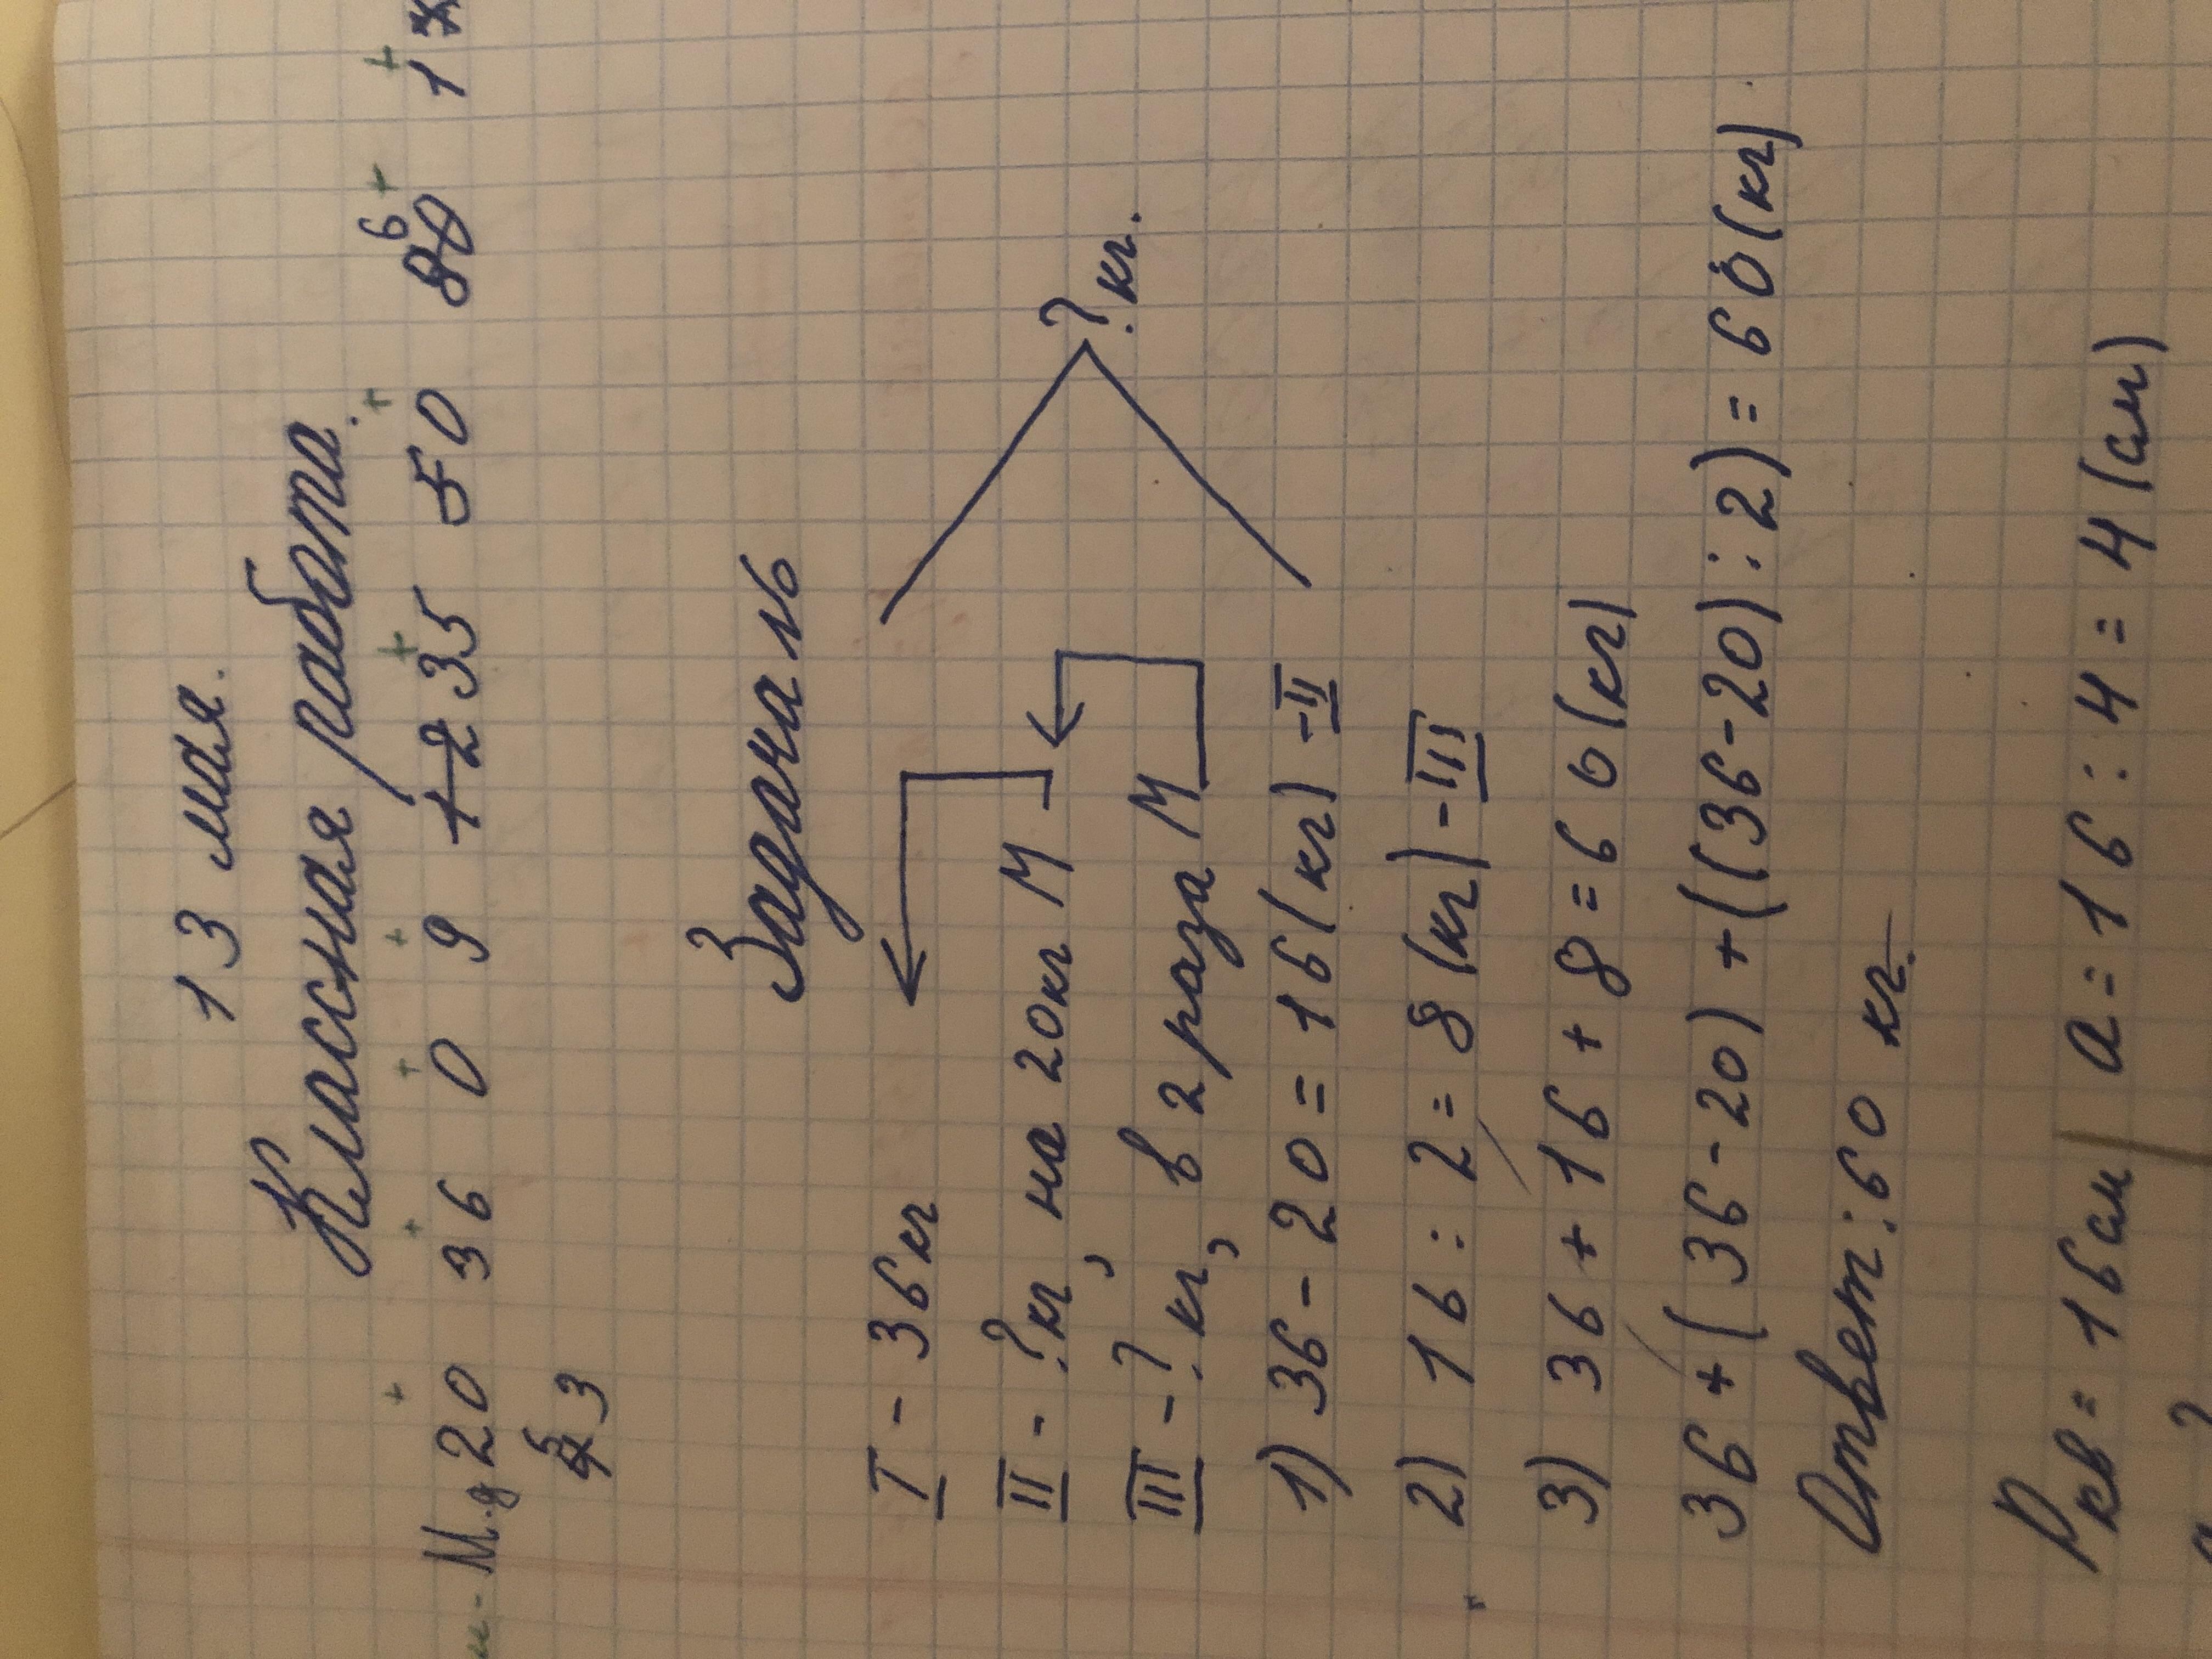 13 мая.
Классная работа.
М.д 20 36 0 9 12 35 50 80 6 1
3
Задача №6
I - 36 кг
II - ? кг, на 20 кг М
III - ? кг, в 2 раза М
? кг.
1) 36 - 20 = 16 (кг) - II
2) 16 : 2 = 8 (кг) - III
3) 36 + 16 + 8 = 60 (кг)
36 + (36 - 20) + ((36 - 20) : 2) = 60 (кг)
Ответ: 60 кг.
Pкв = 16 см a = 16 : 4 = 4 (см)
?